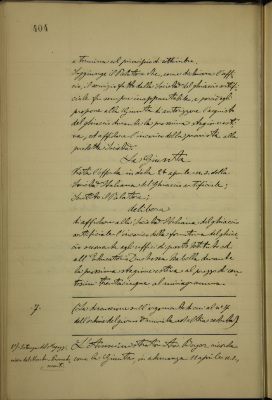 404
e termina al principio di settembre.
Soggiunge il Relatore che, come dichiara l'uffi-
cio, il servizio fatto dalla Società del ghiaccio artifi-
ciale fu sempre inappuntabile, e perciò egli
propone alla Giunta di autorizzare l'acquisto
del ghiaccio durante la prossima stagione esti-
va, ed affidare l'incarico della fornitura alla
predetta Società.
La Giunta
Vista l'offerta in data 24 aprile a.c. della
Società Italiana del ghiaccio artificiale;
Sentito il Relatore;
delibera
di affidare alla Società Italiana del ghiaccio
artificiale l'incarico della fornitura del ghiac-
cio occorrente agli uffici di questo Istituto ed
all'Educatorio Duchessa Isabella durante
la prossima stagione estiva al prezzo di cen-
tesimi trentacinque al miriagramma.
7.
(la discussione sull'argomento di cui al n. 7
dell'ordine del giorno
La Giunta, in adunanza 11 aprile a.c.